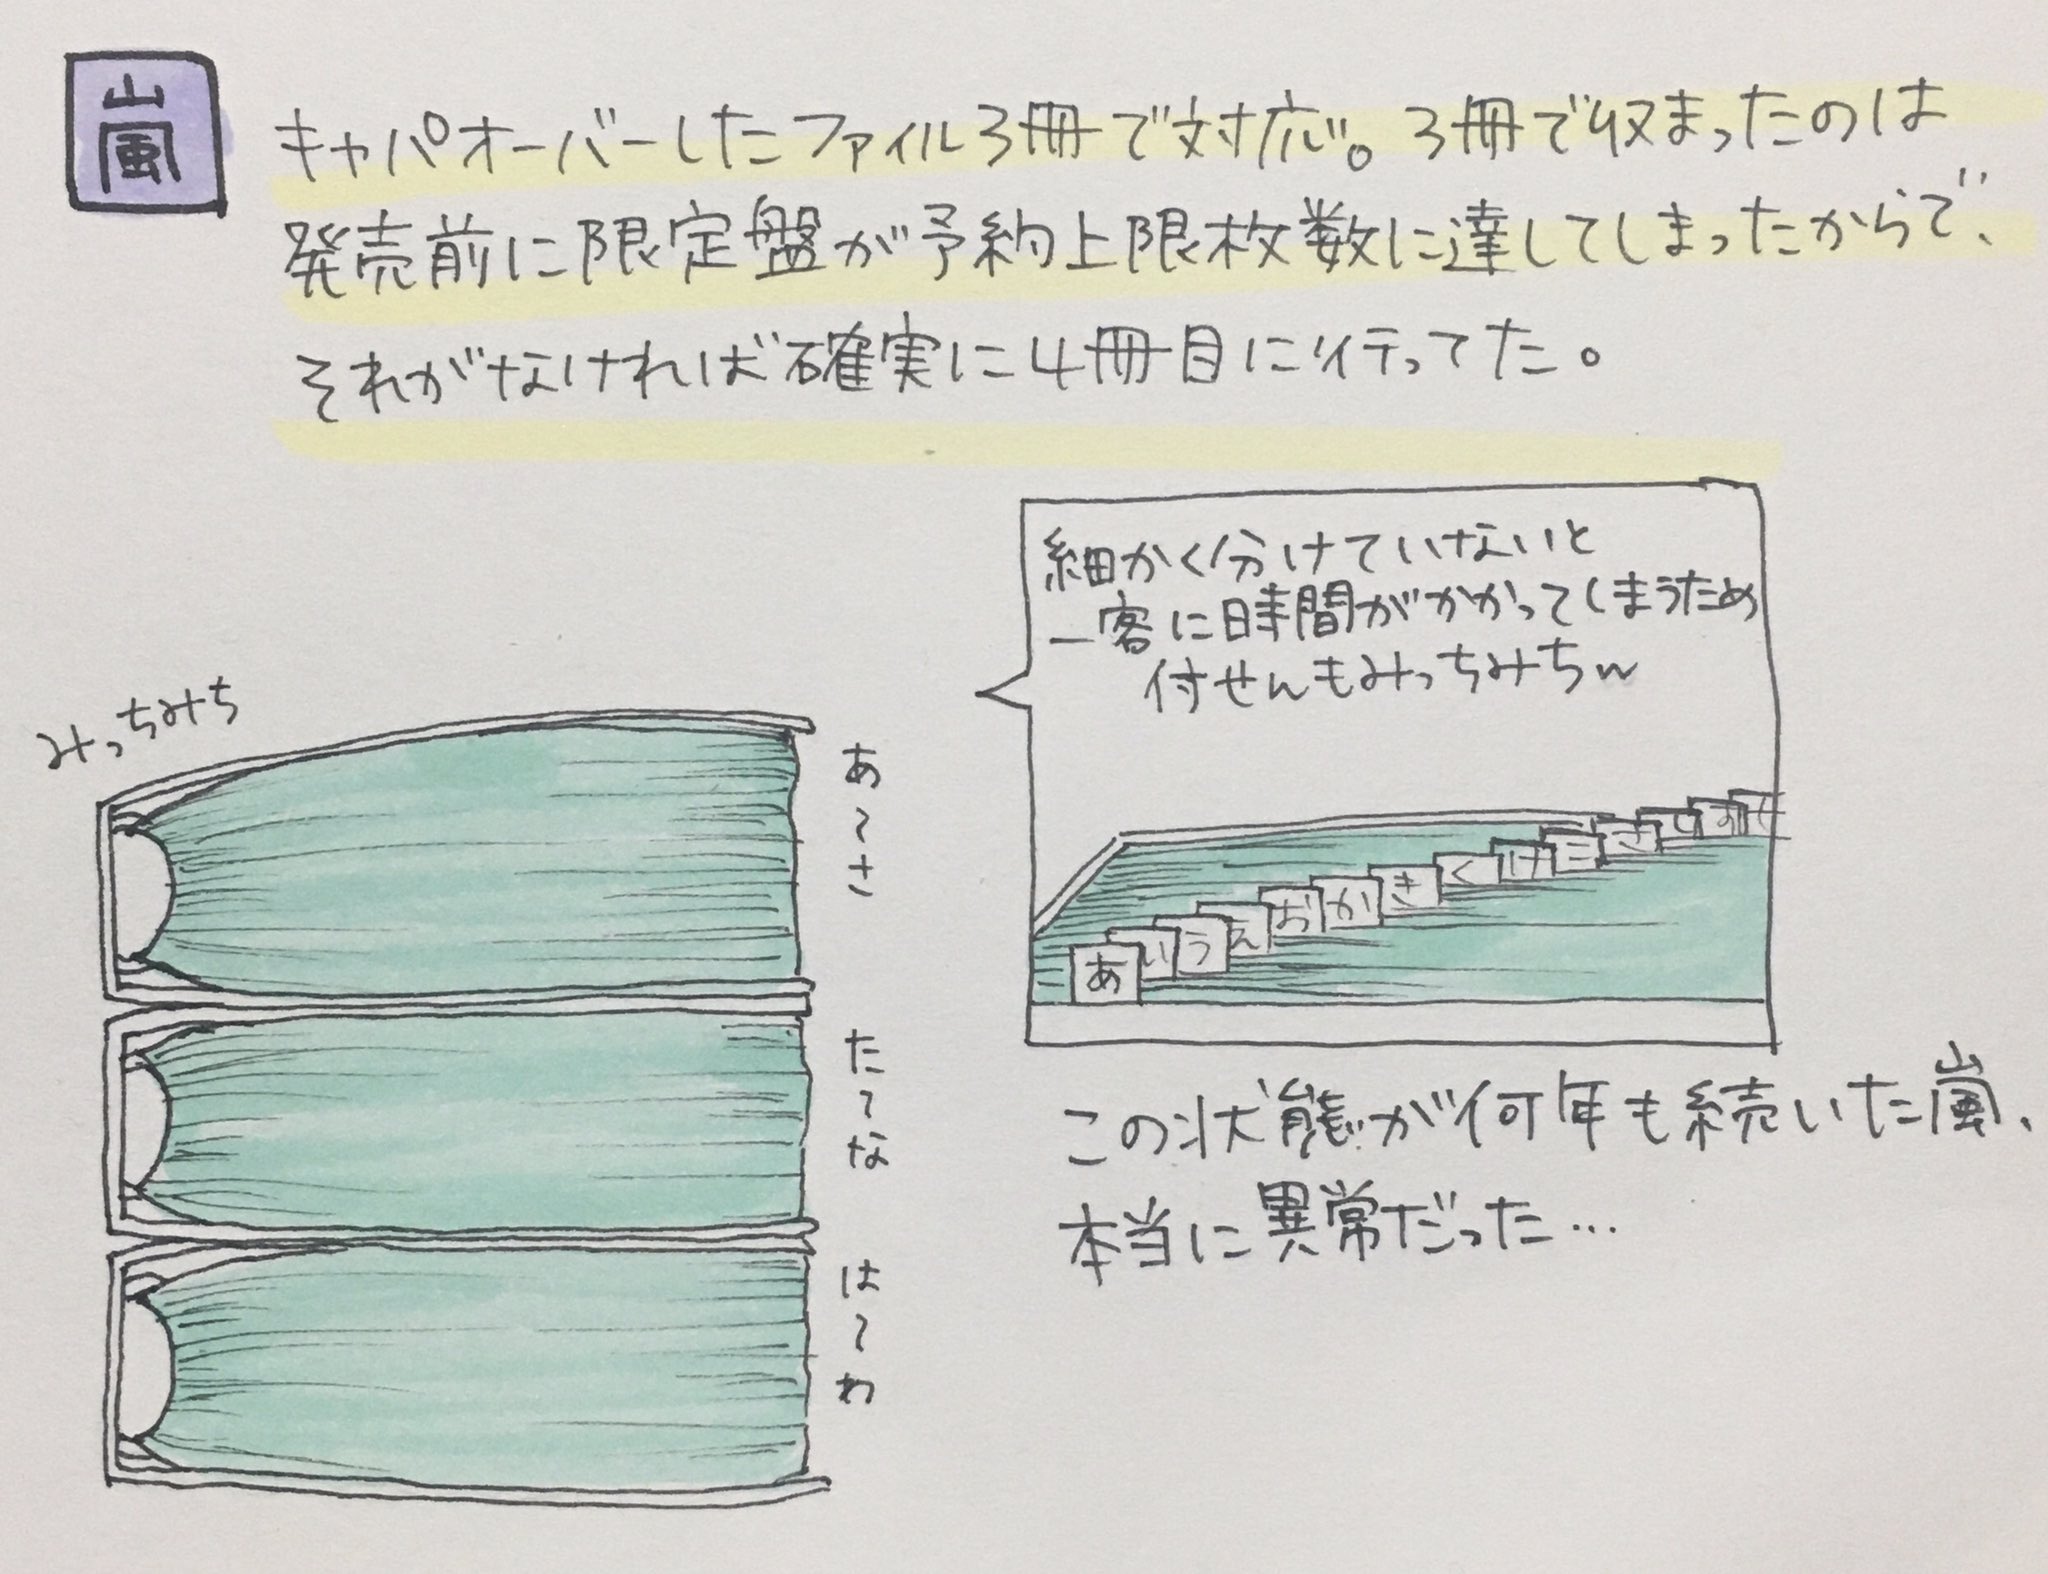 嵐
キャパオーバーしたファイル3冊で対応。3冊で収まったのは
発売前に限定盤が予約上限枚数に達してしまったからで、
それがなければ確実に4冊目に行ってた。
みっちみち
あ〜さ
た〜な
は〜わ
細かく分けていないと
一客に時間がかかってしまうため
付せんもみっちみちw
あ
い
う
え
お
か
き
く
け
こ
さ
し
す
せ
この状態が何年も続いた嵐、
本当に異常だった…